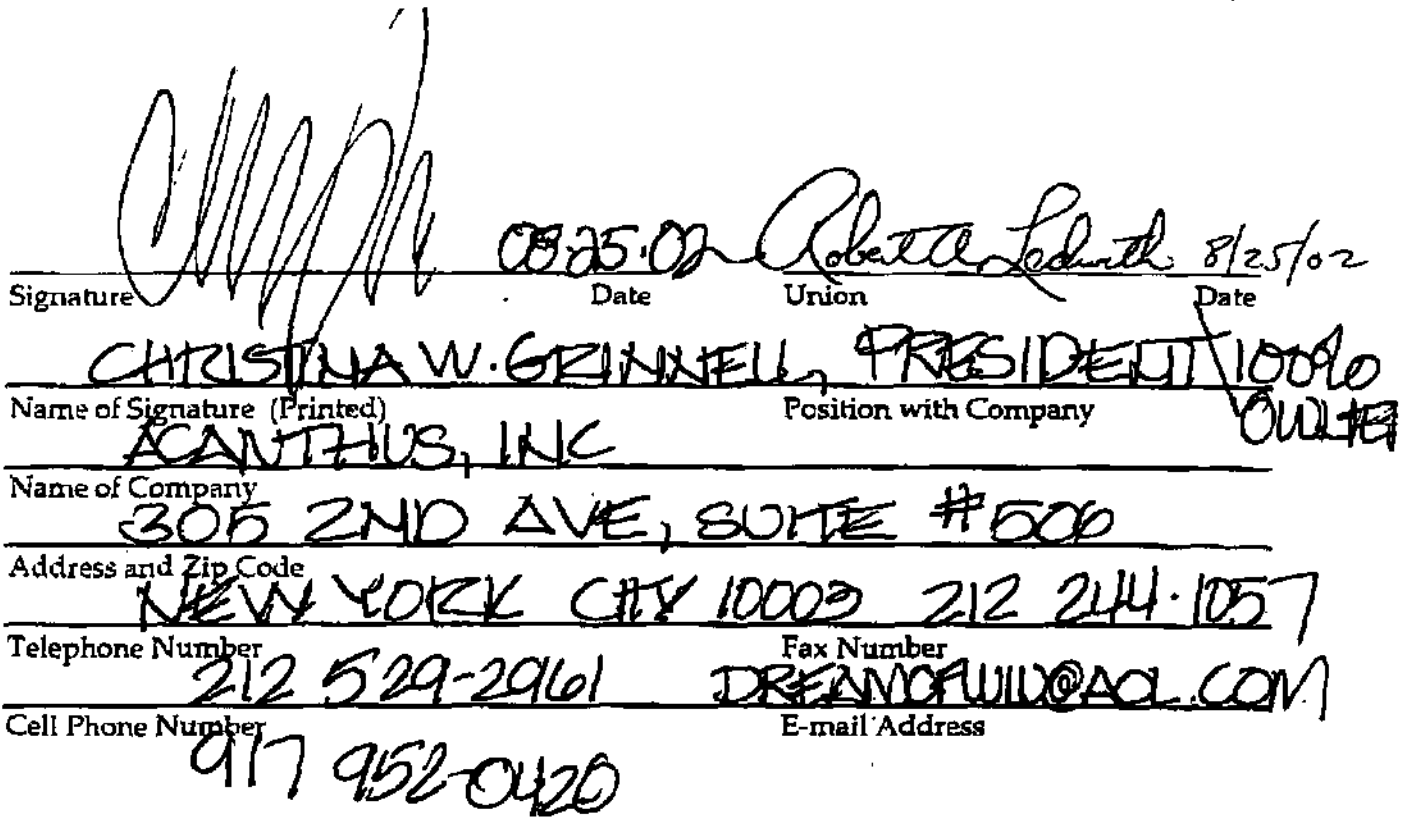 08·25·02 Robert A Ledwith 8/25/02
Signature Date Union Date
CHRISTINA W. GRINNELL, PRESIDENT 100%
Name of Signature (Printed) Position with Company
OWNER
ACANTHUS, INC
Name of Company
305 2ND AVE, SUITE #506
Address and Zip Code
NEW YORK CITY 10003 212 244·1057
Telephone Number Fax Number
212 529-2961 @AOL.COM
Cell Phone Number E-mail Address
917 952-0420